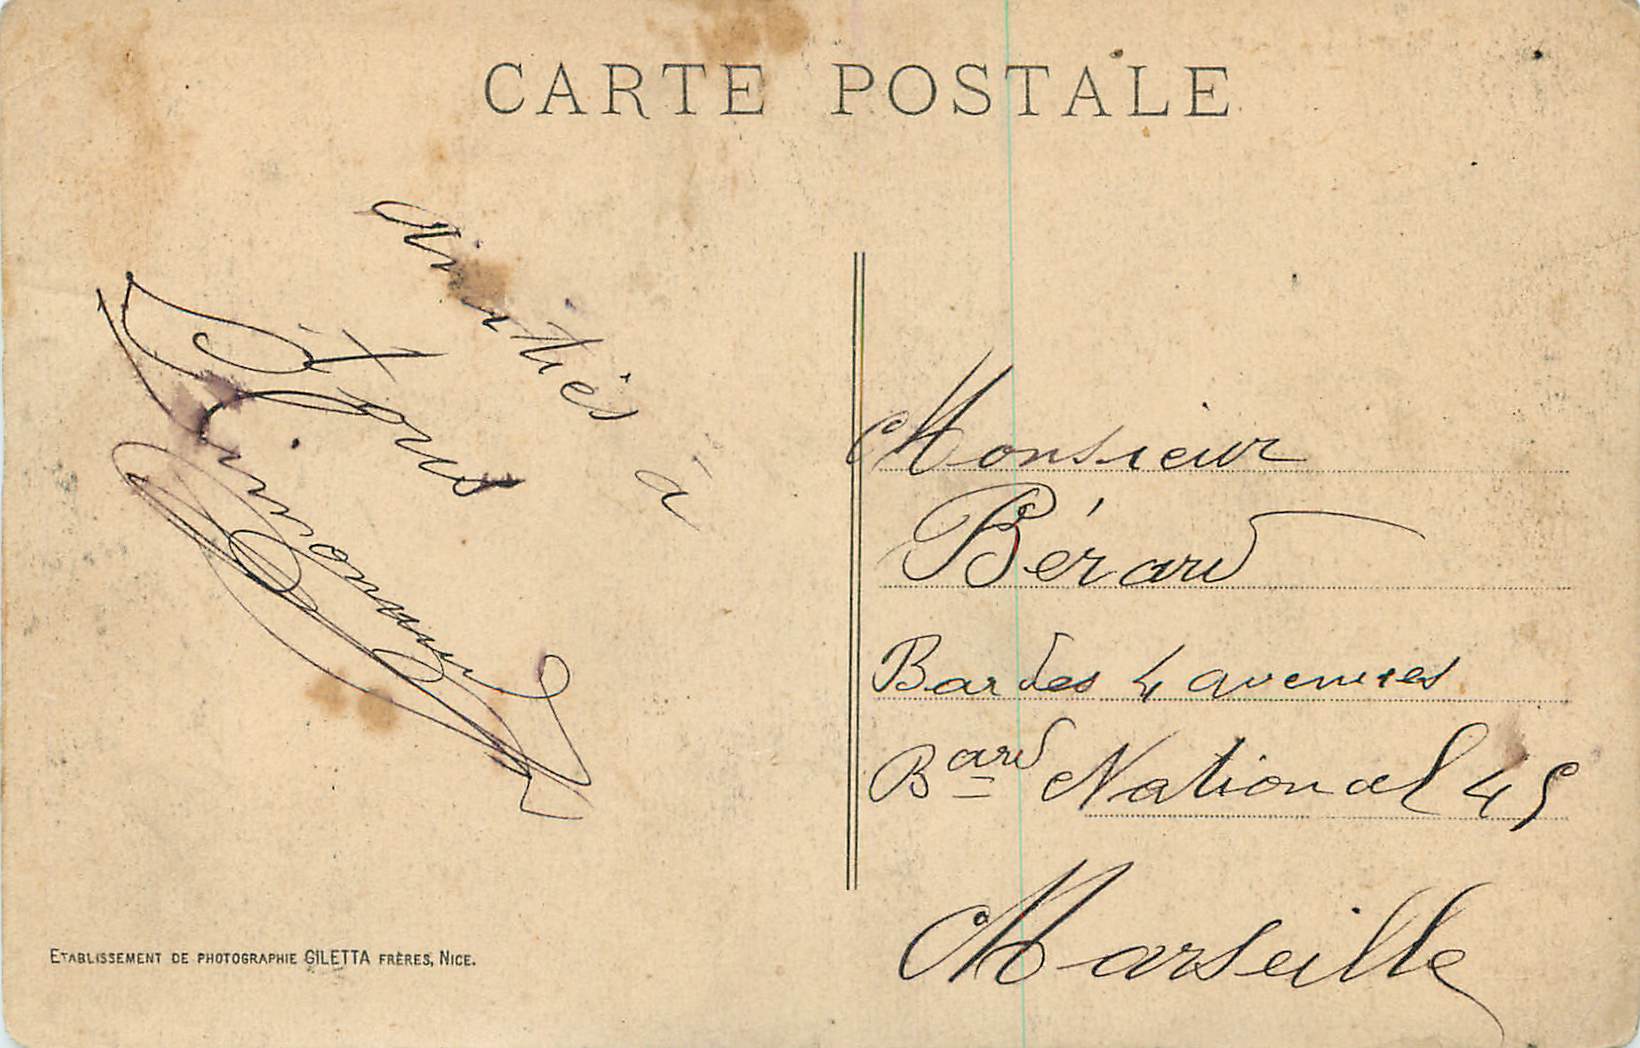 CARTE POSTALE
Amitiés à
tous
Monsieur
Bérard
Bar des 4 avenues
Bard National 45
Marseille
ETABLISSEMENT DE PHOTOGRAPHIE GILETTA FRÈRES, NICE.